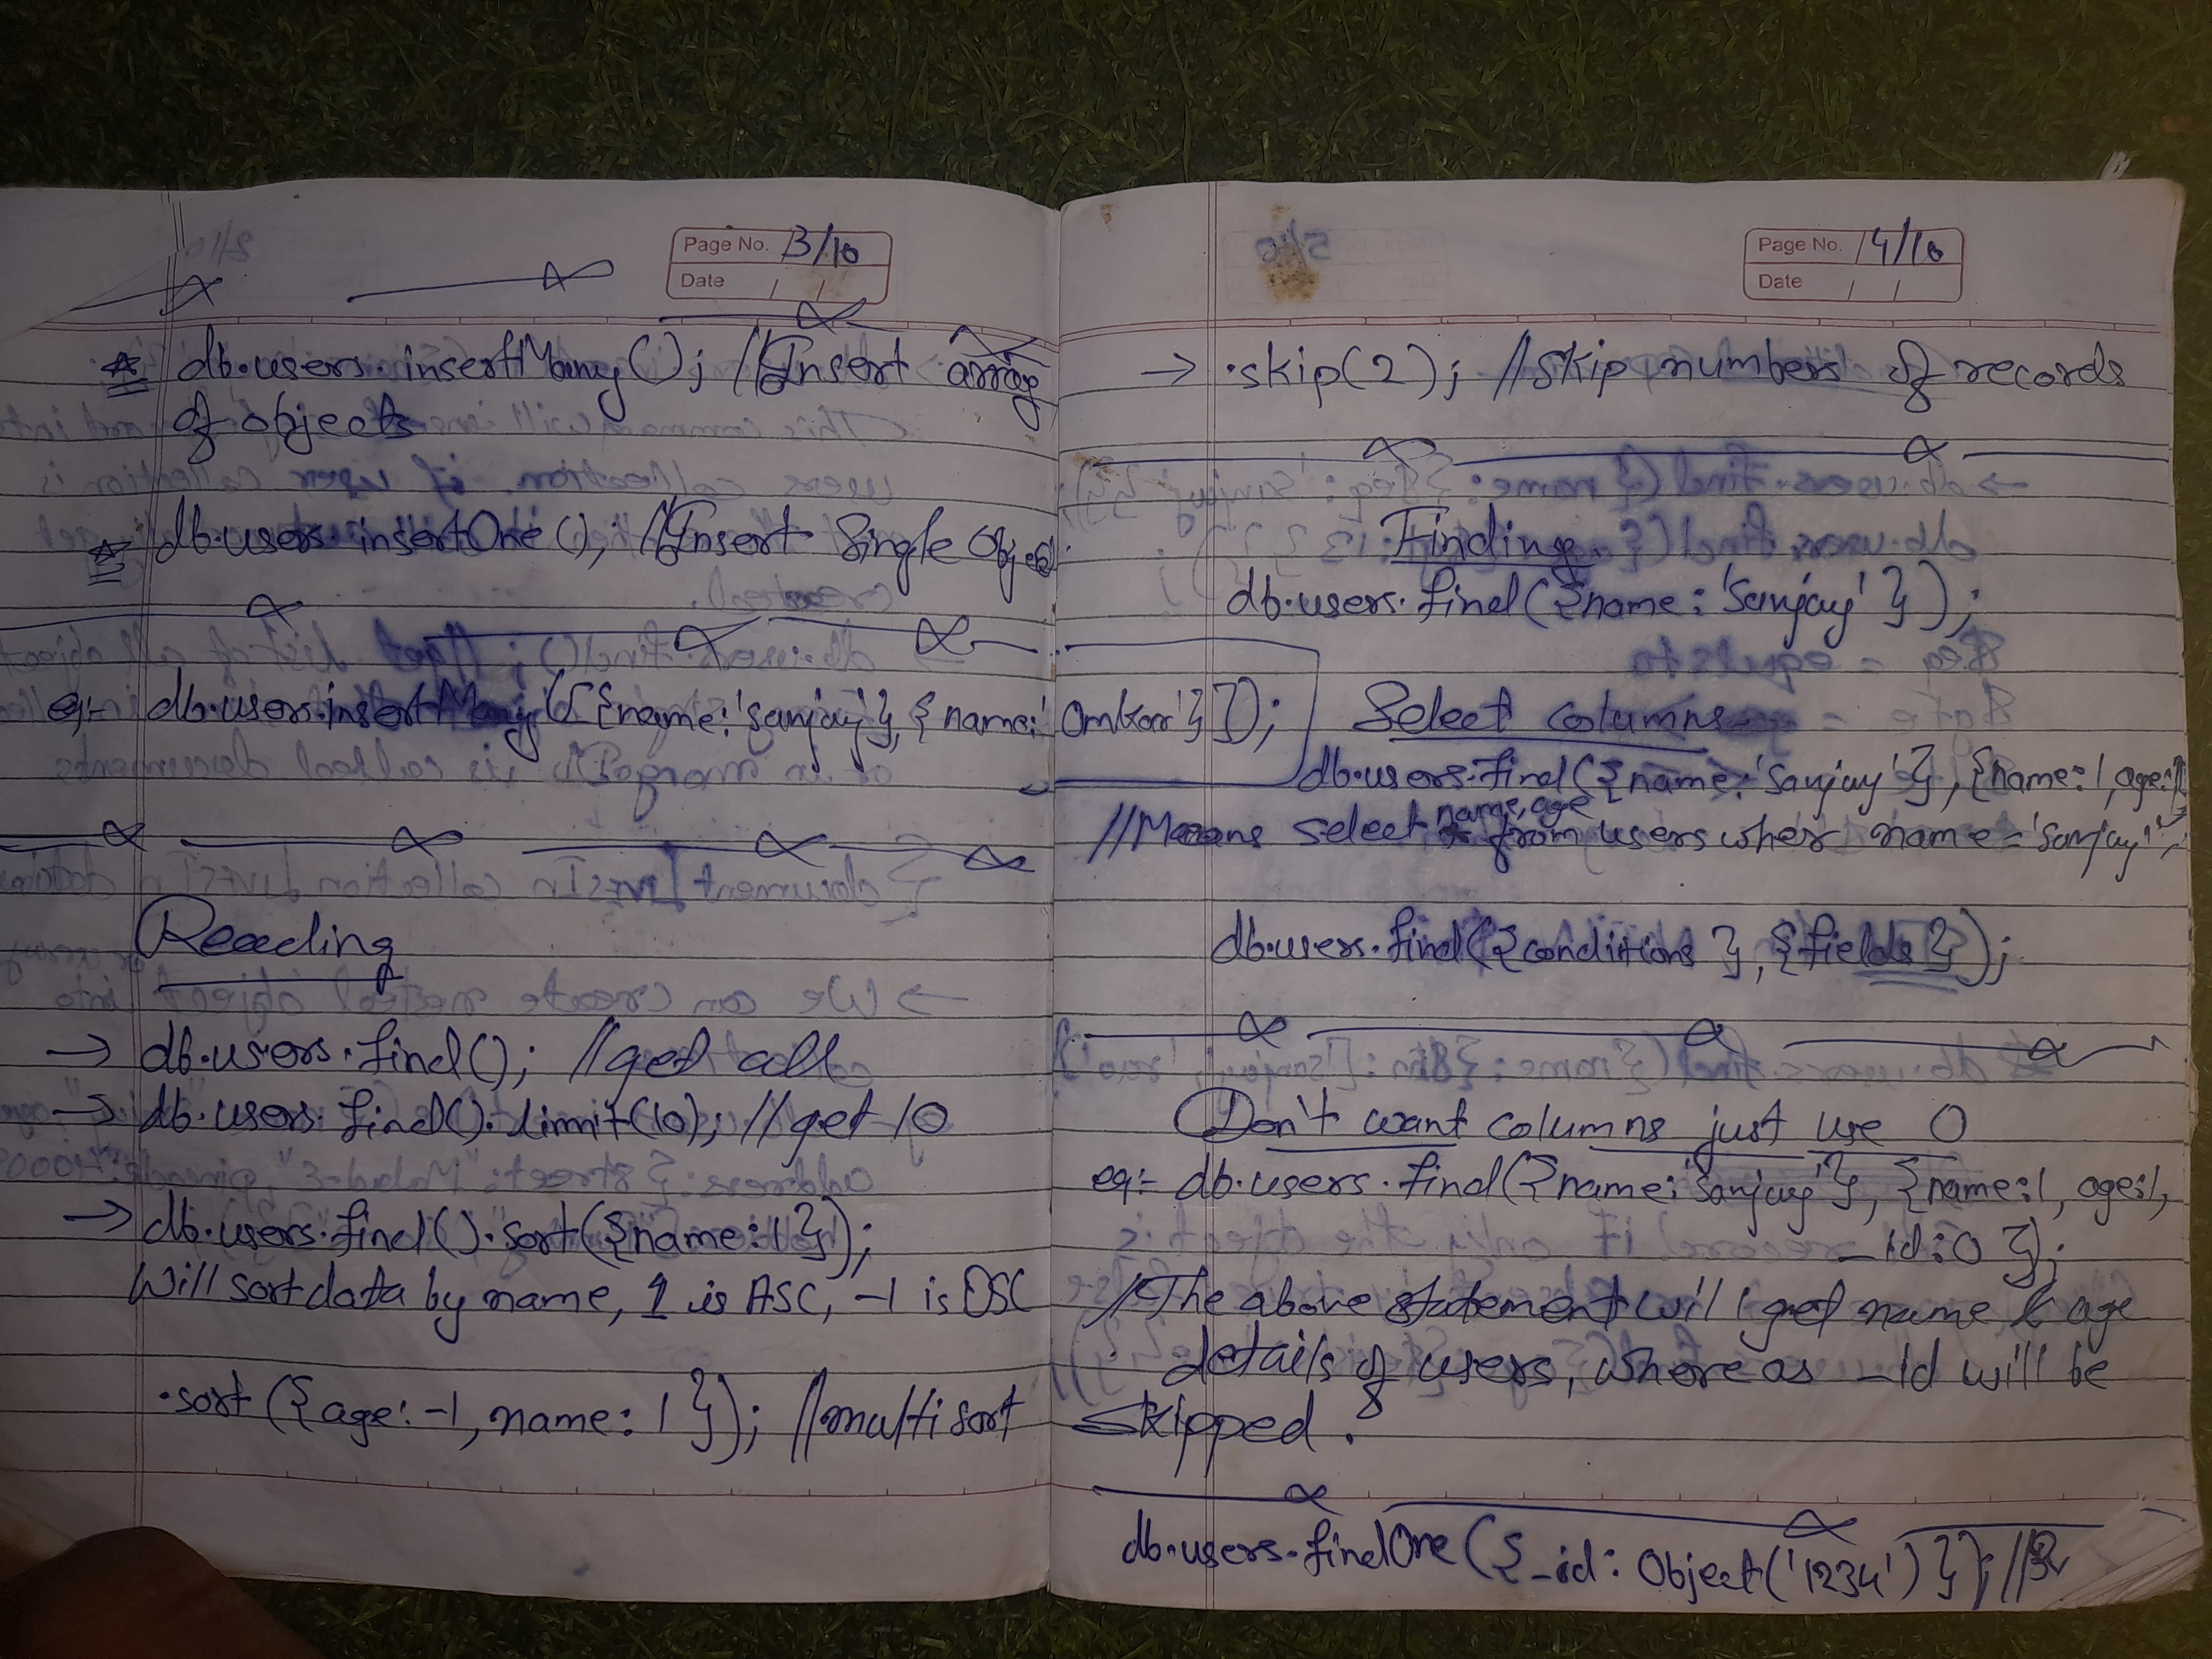 Page No. 3/16
Date / /
☆ db.users.insertMany(); // Insert array
of objects
☆ db.users.insertOne(); // Insert Single Object
eg:- db.users.insertMany([{name:'sanjay'}, {name:'Omkar'}]);
Reading
→ db.users.find(); // get all
→ db.users.find().limit(10); // get 10
→ db.users.find().sort({name:1});
Will sort data by name, 1 is ASC, -1 is DSC
.sort({age:-1, name:1}); // multi sort
Page No. 4/16
Date / /
→ .skip(2); // skip numbers of records
Finding
db.users.find({name:'Sanjay'});
Select columns
db.users.find({name:'Sanjay'}, {name:1, age:1})
// Means select name, age from users where name='sanjay';
db.users.find({conditions}, {fields});
Don't want columns just use 0
eg:- db.users.find({name:'Sanjay'}, {name:1, age:1,
_id:0});
// The above statement will get name & age
details of users, where as _id will be
skipped.
db.users.findOne({_id: Object('1234')}); //